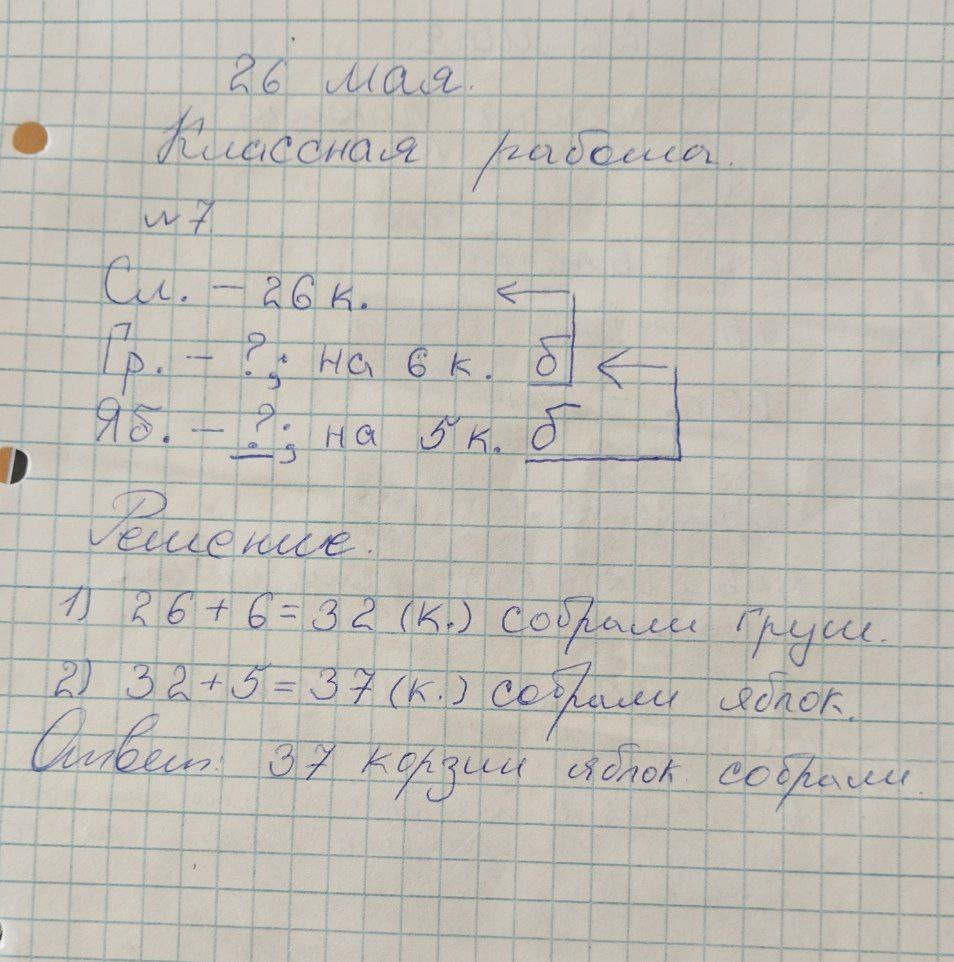 26 мая.
Классная работа.
№7.
Сл. – 26 к.
Гр. – ?; на 6 к. б
Яб. – ?; на 5 к. б
Решение.
1) 26+6=32 (к.) собрали груш.
2) 32+5=37 (к.) собрали яблок.
Ответ: 37 корзин яблок собрали.